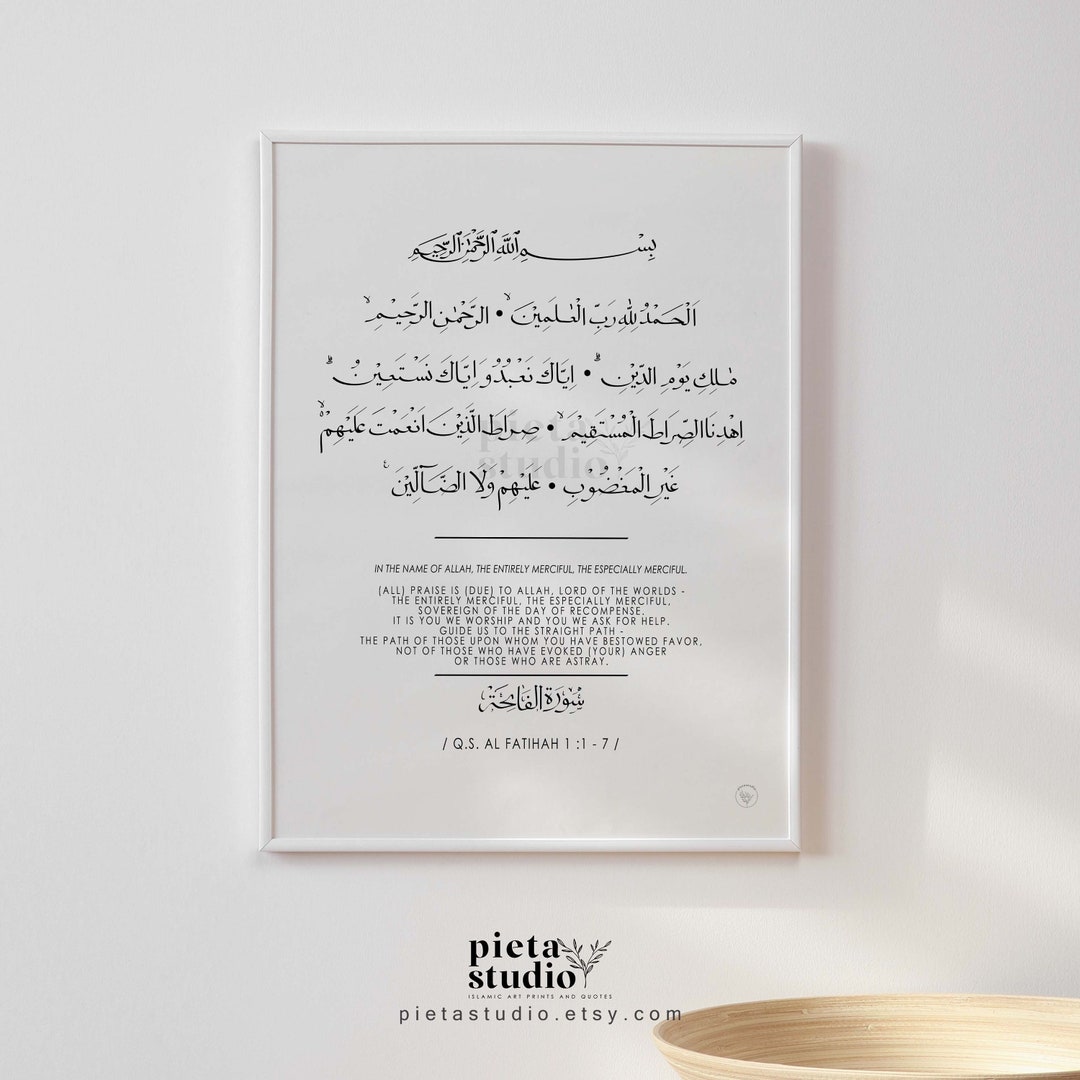 بِسْمِ ٱللَّهِ ٱلرَّحْمَٰنِ ٱلرَّحِيمِ
اَلْحَمْدُ لِلّٰهِ رَبِّ الْعٰلَمِيْنَۙ • الرَّحْمٰنِ الرَّحِيْمِۙ
مٰلِكِ يَوْمِ الدِّيْنِۗ • اِيَّاكَ نَعْبُدُ وَاِيَّاكَ نَسْتَعِيْنُۗ
اِهْدِنَا الصِّرَاطَ الْمُسْتَقِيْمَۙ • صِرَاطَ الَّذِيْنَ اَنْعَمْتَ عَلَيْهِمْۙ
غَيْرِ الْمَغْضُوْبِ • عَلَيْهِمْ وَلَا الضَّاۤلِّيْنَࣖ
pieta
studio
IN THE NAME OF ALLAH, THE ENTIRELY MERCIFUL, THE ESPECIALLY MERCIFUL.
(ALL) PRAISE IS (DUE) TO ALLAH, LORD OF THE WORLDS -
THE ENTIRELY MERCIFUL, THE ESPECIALLY MERCIFUL,
SOVEREIGN OF THE DAY OF RECOMPENSE.
IT IS YOU WE WORSHIP AND YOU WE ASK FOR HELP.
GUIDE US TO THE STRAIGHT PATH -
THE PATH OF THOSE UPON WHOM YOU HAVE BESTOWED FAVOR,
NOT OF THOSE WHO HAVE EVOKED (YOUR) ANGER
OR THOSE WHO ARE ASTRAY.
سُوْرَة الفَاتِحَة
/ Q.S. AL FATIHAH 1 :1 - 7 /
pieta
studio
ISLAMIC ART PRINTS AND QUOTES
pietastudio.etsy.com